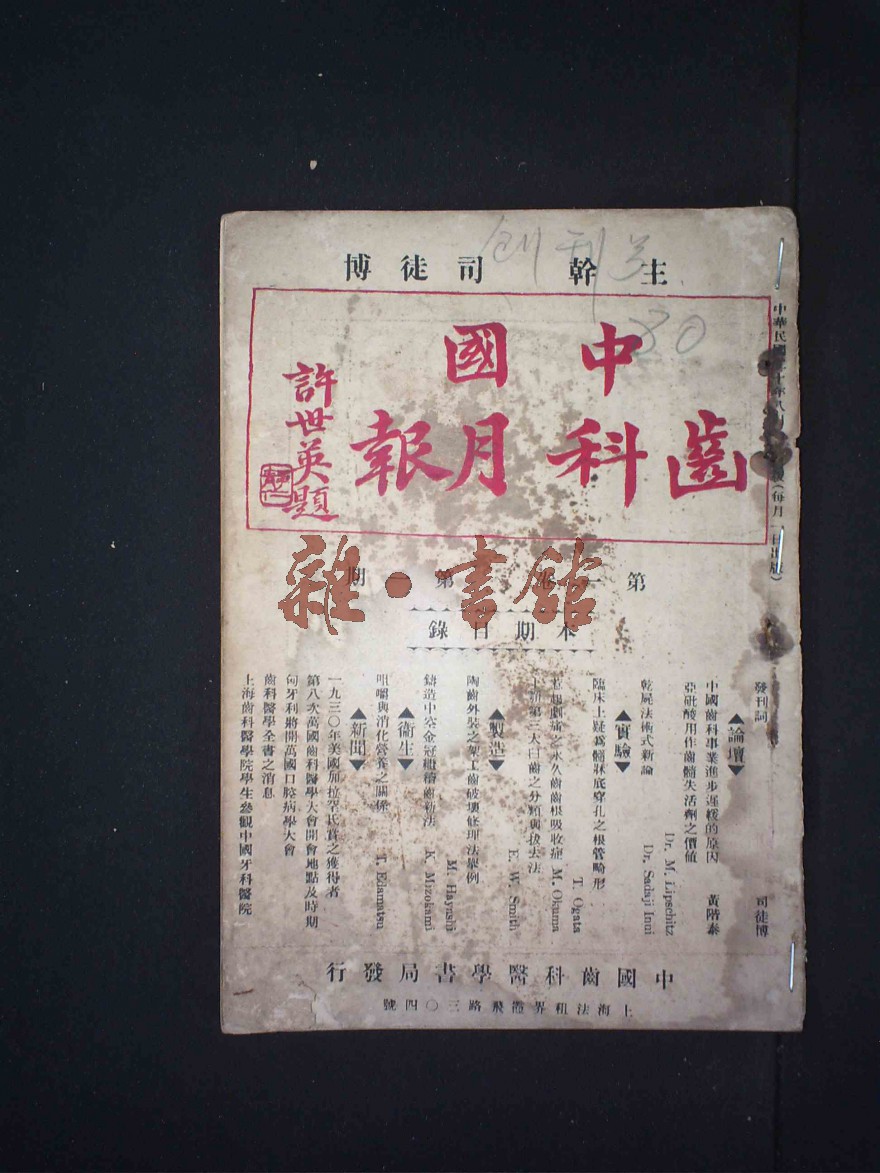 主幹 司徒博
中國
齒科月報
許世英題
創刊号
80
第一卷 第一期
雜·書館
本期目錄
發刊詞 司徒博
▲論壇▼
中國齒科事業進步遲緩的原因 黃階泰
亞砒酸用作齒髓失活劑之價値 Dr. M. Lipschitz
乾屍法術式新論 Dr. Sadaji Inui
▲實驗▼
臨床上疑爲髓牀底穿孔之根管畸形 T. Ogata
永久齒齒根吸收症 M. Okuma
第三大臼齒之分類與拔去法 E. W. Smith
▲製造▼
陶齒外裝之架工齒破壞修理法舉例 M. Hayashi
鑄造中空金冠繼續齒新法 K. Mizokami
▲衞生▼
咀嚼與消化營養之關係 T. Edamatsu
▲新聞▼
一九三〇年美國加拉空氏賞之獲得者
第八次萬國齒科醫學大會開會地點及時期
匈牙利將開萬國口腔病學大會
齒科醫學全書之消息
上海齒科醫學院學生參觀中國牙科醫院
中國齒科醫學書局發行
上海法租界霞飛路三〇四號